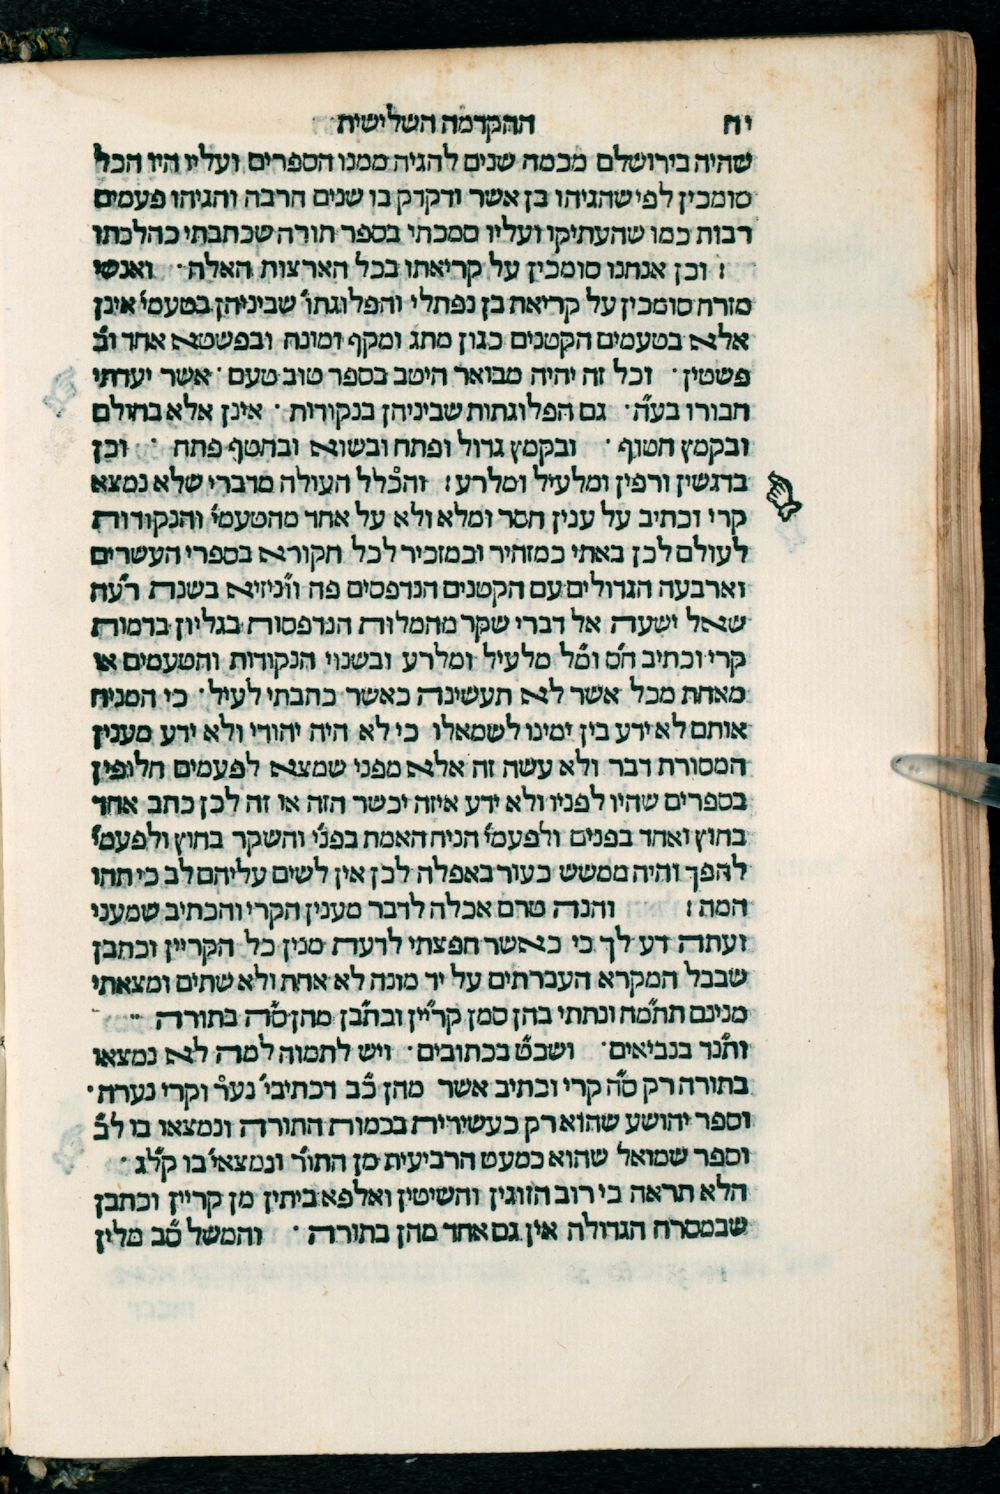 יח ההקדמה השלישית
שהיה בירושלם מכמה שנים להגיה ממנו הספרים ועליו היו הכל
סומכין לפי שהגיהו בן אשר ודקדק בו שנים הרבה והגיהו פעמים
רבות כמו שהעתיקו ועליו סמכתי בספר תורה שכתבתי כהלכתו
: וכן אנחנו סומכין על קריאתו בכל הארצות האלה · ואנשי
מזרח סומכין על קריאת בן נפתלי והפלוגתו׳ שביניהן בטעמי׳ אינן
אלא בטעמים הקטנים כגון מתג ומקף ומונח ובפשטא אחד וב׳
פשטין · וכל זה יהיה מבואר היטב בספר טוב טעם · אשר יעדתי
חבורו בע״ה · גם הפלוגתות שביניהן בנקודות · אינן אלא בחולם
ובקמץ חטוף · ובקמץ גדול ופתח ובשוא ובחטף פתח · וכן
בדגשין ורפין ומלעיל ומלרע : והכלל העולה מדברי שלא נמצא
קרי וכתיב על ענין חסר ומלא ולא על אחד מהטעמי׳ והנקודות
לעולם לכן באתי כמזהיר וכמזכיר לכל הקורא בספרי העשרים
וארבעה הגדולים עם הקטנים הנדפסים פה ויניזיא בשנת רע״ה
שאל ישעה אל דברי שקר מהמלות הנדפסות בגליון בדמות
קרי וכתיב ח״ס ומ״ל מלעיל ומלרע ובשנוי הנקודות והטעמים או
מאחת מכל אשר לא תעשינה כאשר כתבתי לעיל · כי המגיה
אותם לא ידע בין ימינו לשמאלו כי לא היה יהודי ולא ידע מענין
המסורת דבר ולא עשה זה אלא מפני שמצא לפעמים חלופין
בספרים שהיו לפניו ולא ידע איזה יכשר הזה או זה לכן כתב אחד
בחוץ ואחד בפנים ולפעמי׳ הניח האמת בפני׳ והשקר בחוץ ולפעמי׳
להפך והיה ממשש כעור באפלה לכן אין לשים עליהם לב כי תהו
המה : והנה טרם אכלה לדבר מענין הקרי והכתיב שמעני
ועתה דע לך כי כאשר חפצתי לדעת מנין כל הקריין וכתבן
שבכל המקרא העברתים על יד מונה לא אחת ולא שתים ומצאתי
מנינם תתמ״ח ונתתי בהן סמן קריין וכתבן מהן ס״ה בתורה
ותנ״ד בנביאים · ושכ״ט בכתובים · ויש לתמוה למה לא נמצאו
בתורה רק ס״ה קרי וכתיב אשר מהן כ״ב דכתיבי׳ נער וקרי נערה ·
וספר יהושע שהוא רק כעשירית בכמות התורה ונמצאו בו ל״ב
וספר שמואל שהוא כמעט הרביעית מן התור׳ ונמצאי׳ בו קל״ג ·
הלא תראה כי רוב הזוגין והשיטין ואלפא ביתין מן קריין וכתבן
שבמסרח הגדולה אין גם אחד מהן בתורה · והמשל ס״ב מלין